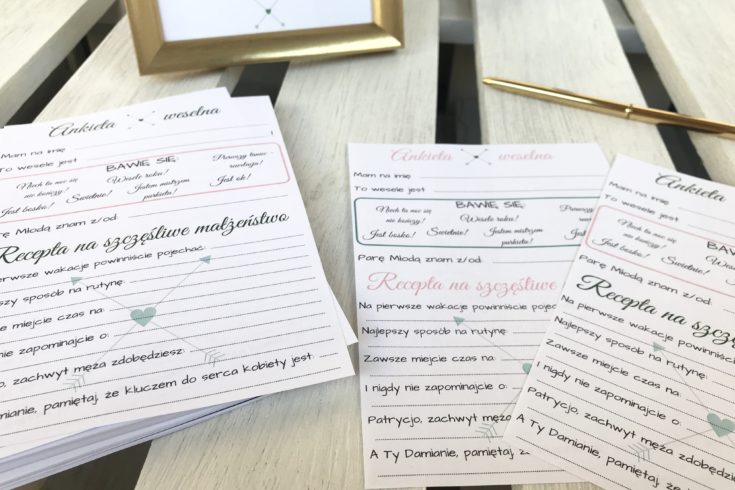 Ankieta weselna
Mam na imię
To wesele jest
BAWIĘ SIĘ:
Niech ta noc się nie kończy! Wesele roku! Prawdzy taniec
Jest bosko! Świetnie! Jestem mistrzem parkietu! Jest ok!
Parę Młodą znam z/od:
Recepta na szczęśliwe małżeństwo
pierwsze wakacje powinniście pojechać:
sposób na rutynę:
miejcie czas na:
nie zapominajcie o:
zachwyt męża zdobędziesz:
Damianie, pamiętaj, że kluczem do serca kobiety jest
Ankieta weselna
Mam na imię
To wesele jest
BAWIĘ SIĘ:
Niech ta noc się nie kończy! Wesele roku!
Jest bosko! Świetnie! Jestem mistrzem parkietu! Jest ok!
Parę Młodą znam z/od:
Recepta na szczęśliwe
Na pierwsze wakacje powinniście
Najlepszy sposób na rutynę:
Zawsze miejcie czas na:
I nigdy nie zapominajcie o:
Patrycjo, zachwyt męża
A Ty Damianie, pamiętaj,
Ankieta
Mam na imię
To wesele jest
Niech ta noc się nie kończy!
Jest bosko! Świetnie!
Parę Młodą znam z/od:
Recepta na
Na pierwsze wakacje powinniście
Najlepszy sposób na rutynę:
Zawsze miejcie czas na:
I nigdy nie zapominajcie o:
Patrycjo, zachwyt męża
A Ty Damianie, pamiętaj, że